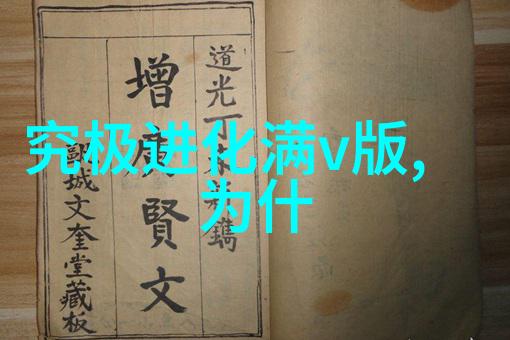 究极进化满v版,
为什
道光丁 鐫
增廣賢文
城文奎堂藏板